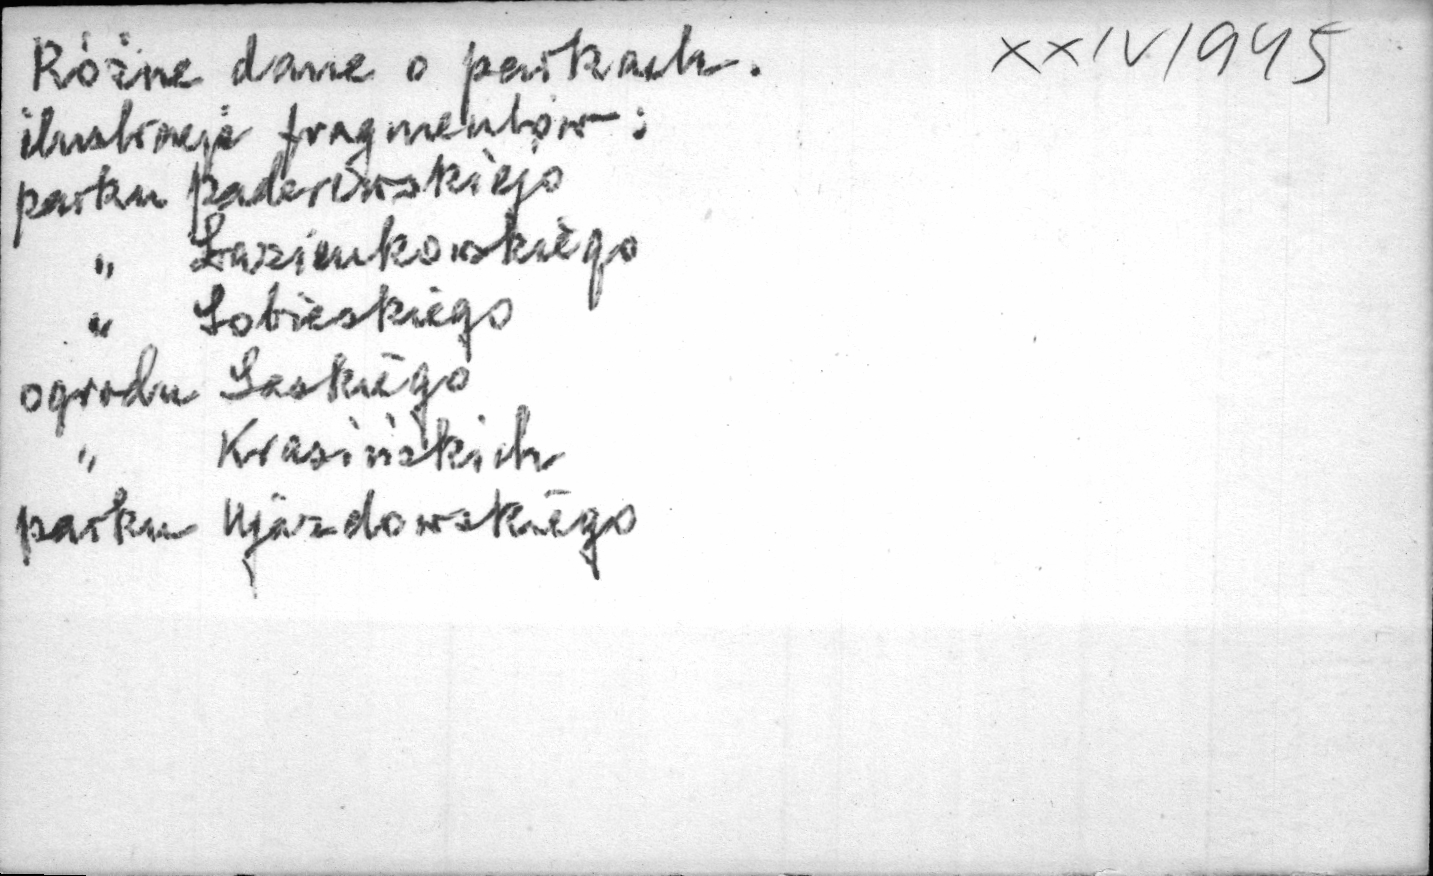 Różne dane o parkach. XXIV/945
ilustracje fragmentów:
parku Paderewskiego
„ Łazienkowskiego
„ Sobieskiego
ogrodu Saskiego
„ Krasińskich
parku Ujazdowskiego